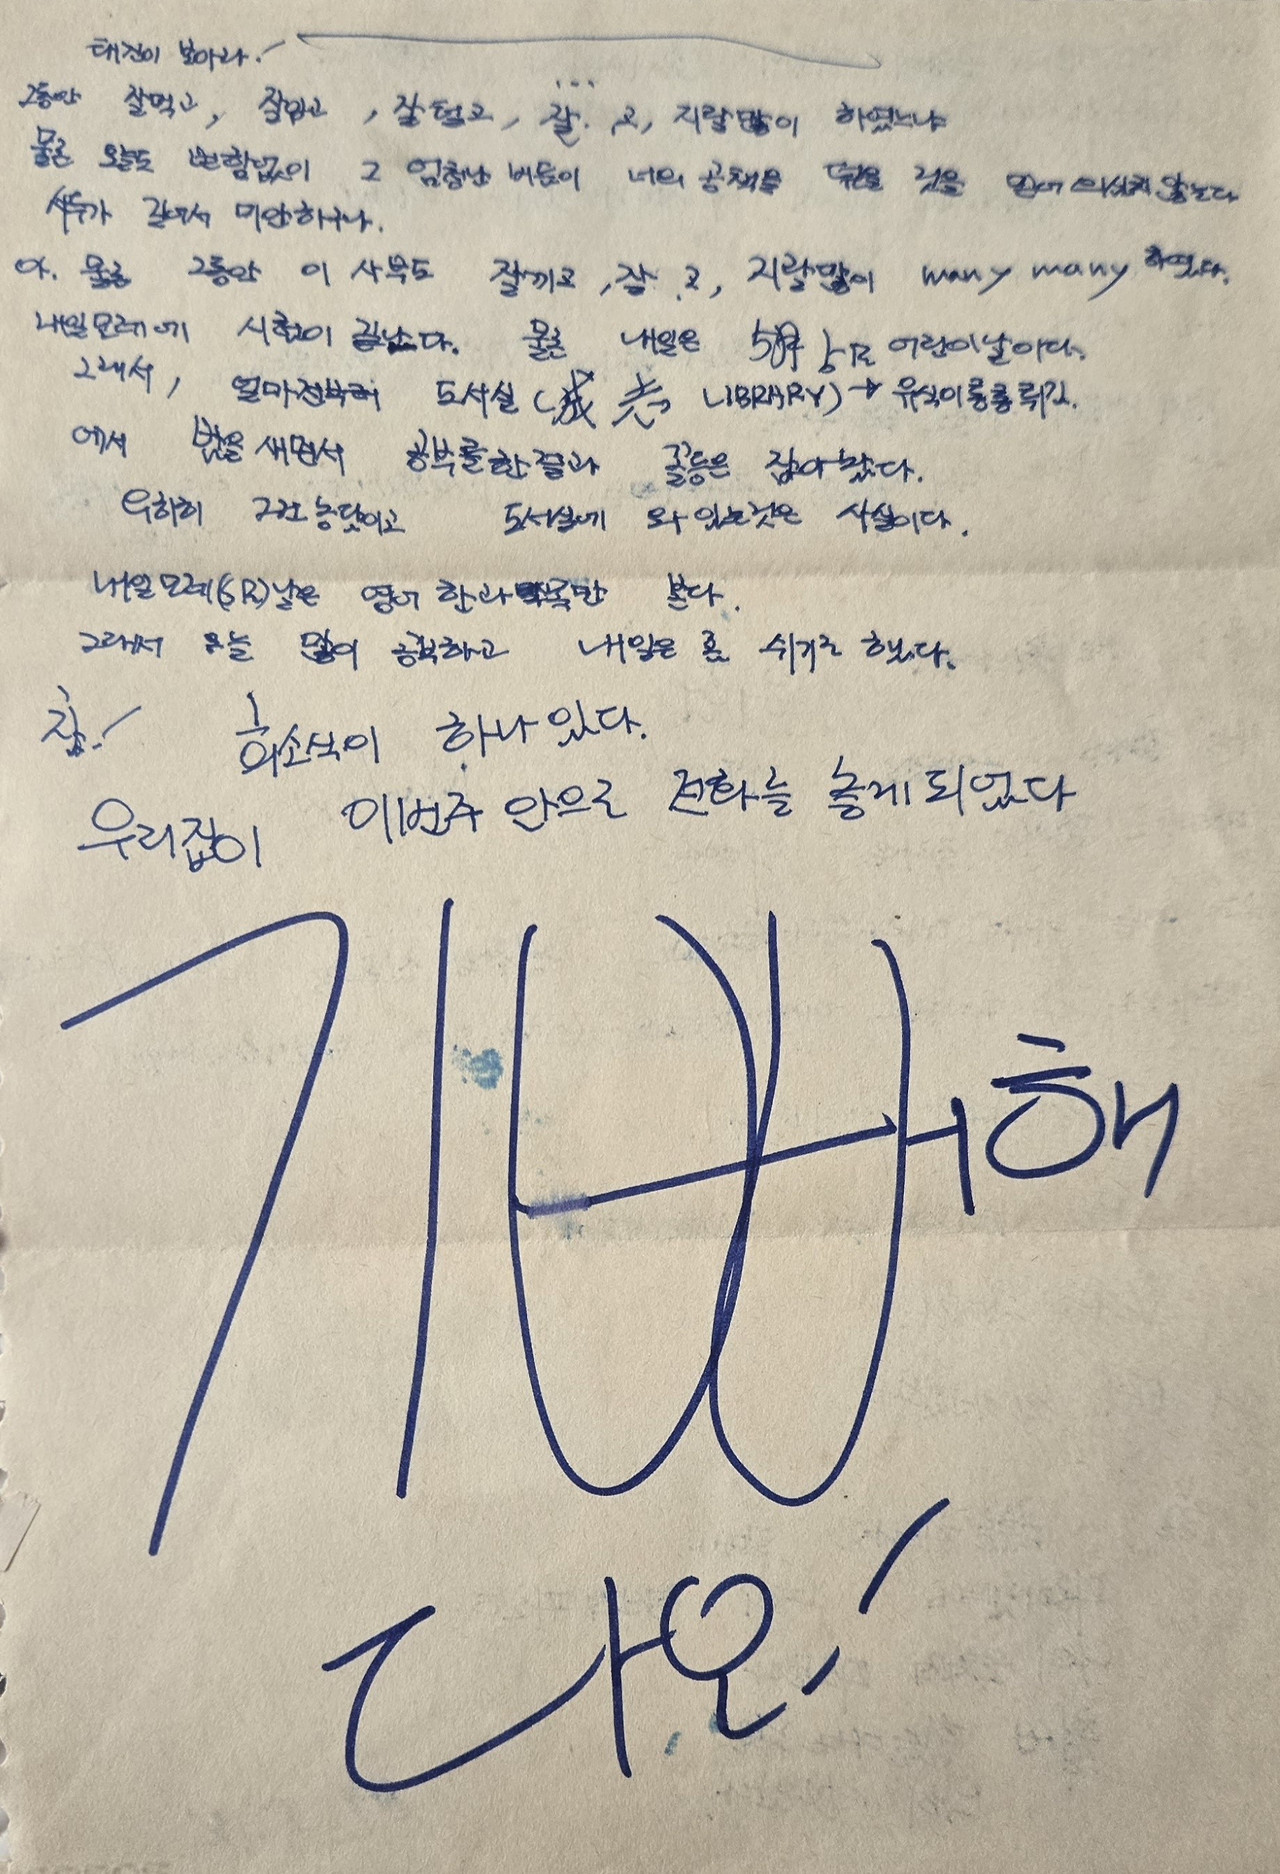 태진이 보아라!
그동안 잘먹고, 잘입고, 잘 털고, 잘 . 고, 지랄많이 하였느냐
물론 오늘도 변함없이 그 엄청난 버릇이 너의 공책을 것을 믿어 의심치 않는다
사두가 길어서 미안하구나.
아. 물론 그동안 이 사부도 잘끼고, 잘 . 고, 지랄많이 many many 하였다.
내일모레에 시험이 끝난다. 물론 내일은 5月 5日 어린이날이다.
그래서, 얼마전부터 도서실 ( LIBRARY) → 유식이 룡룡
에서 밤을 새면서 공부를한 결과 꼴등은 잡아 놨다.
우히히 그건 농담이고 도서실에 와 있는것은 사실이다.
내일모레(6日)날은 영어 한과목만 본다.
그래서 오늘 많이 공부하고 내일은 푹 쉬기로 했다.
참! 희소식이 하나 있다.
우리집이 이번주 안으로 전화를 놓게 되었다
기뻐해
다오!